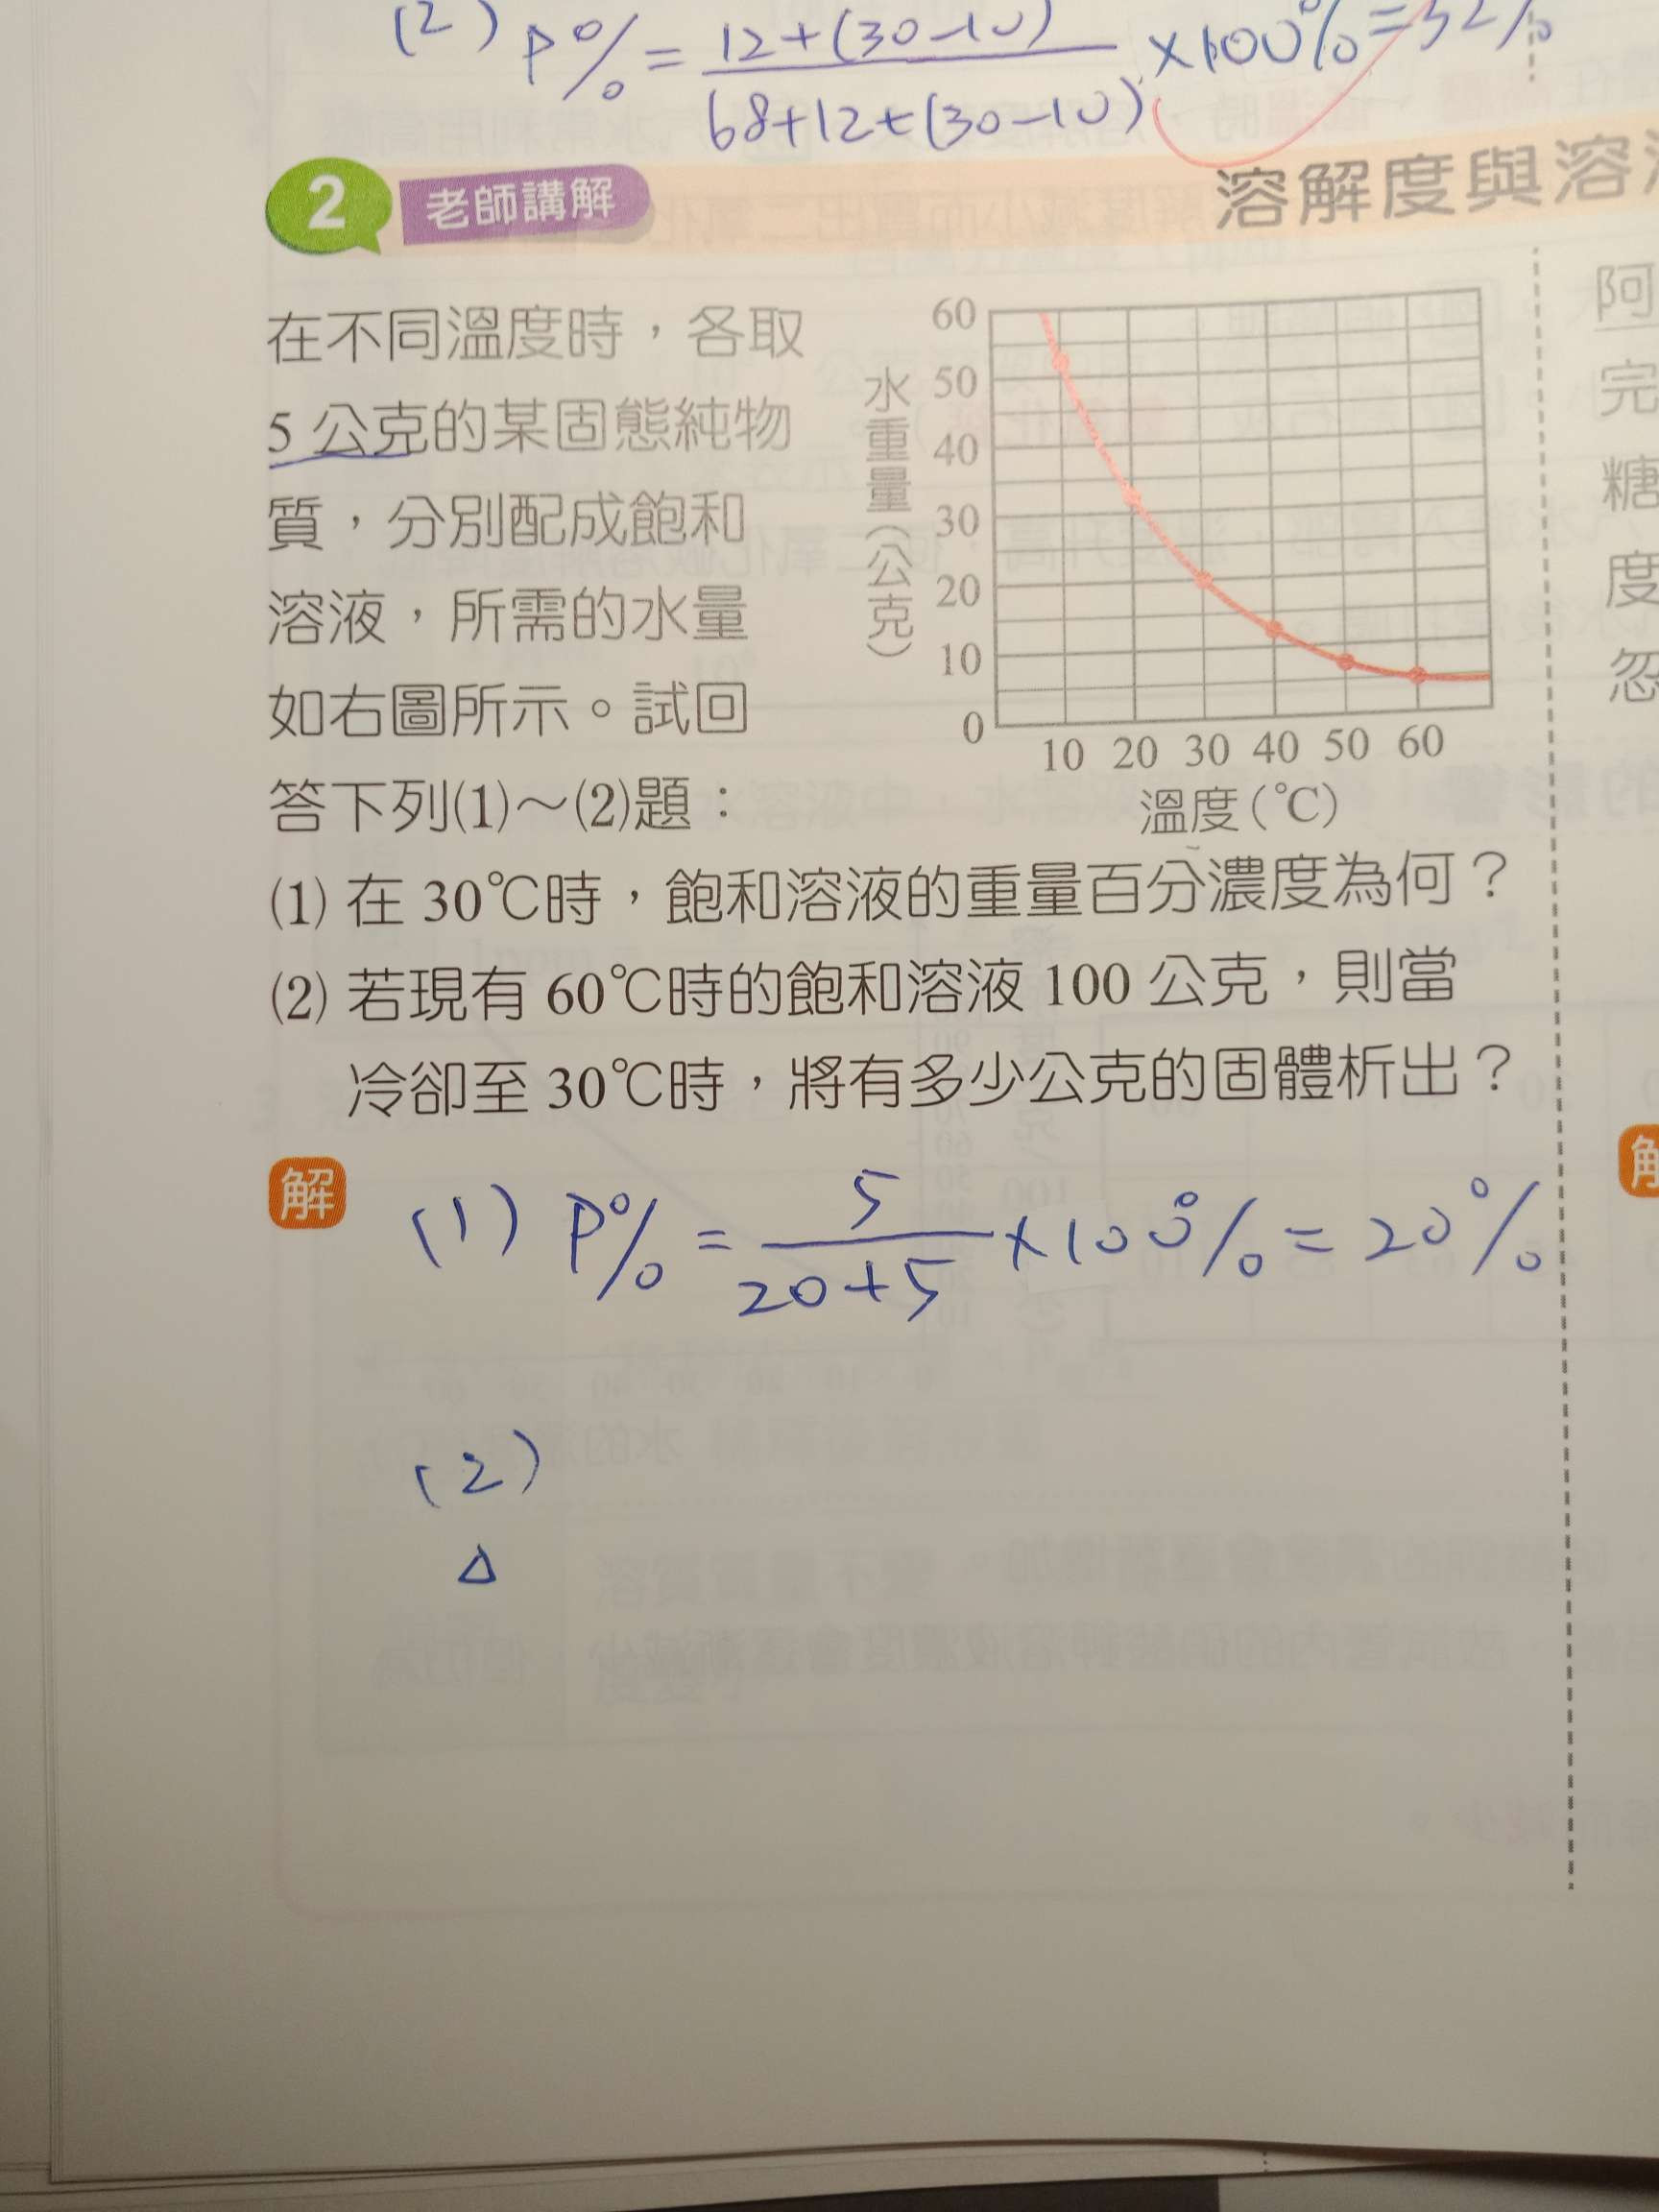 (2) P% = 12+(30-10) / 68+12+(30-10) ×100% = 32%
2 老師講解
溶解度與溶
在不同溫度時，各取
5 公克的某固態純物
質，分別配成飽和
溶液，所需的水量
如右圖所示。試回
答下列(1)～(2)題：
水重量(公克)
60
50
40
30
20
10
0
10 20 30 40 50 60
溫度(℃)
(1) 在 30℃時，飽和溶液的重量百分濃度為何？
(2) 若現有 60℃時的飽和溶液 100 公克，則當
冷卻至 30℃時，將有多少公克的固體析出？
解
(1) P% = 5 / 20+5 ×100% = 20%
(2)
△
阿
完
糖
度
忽